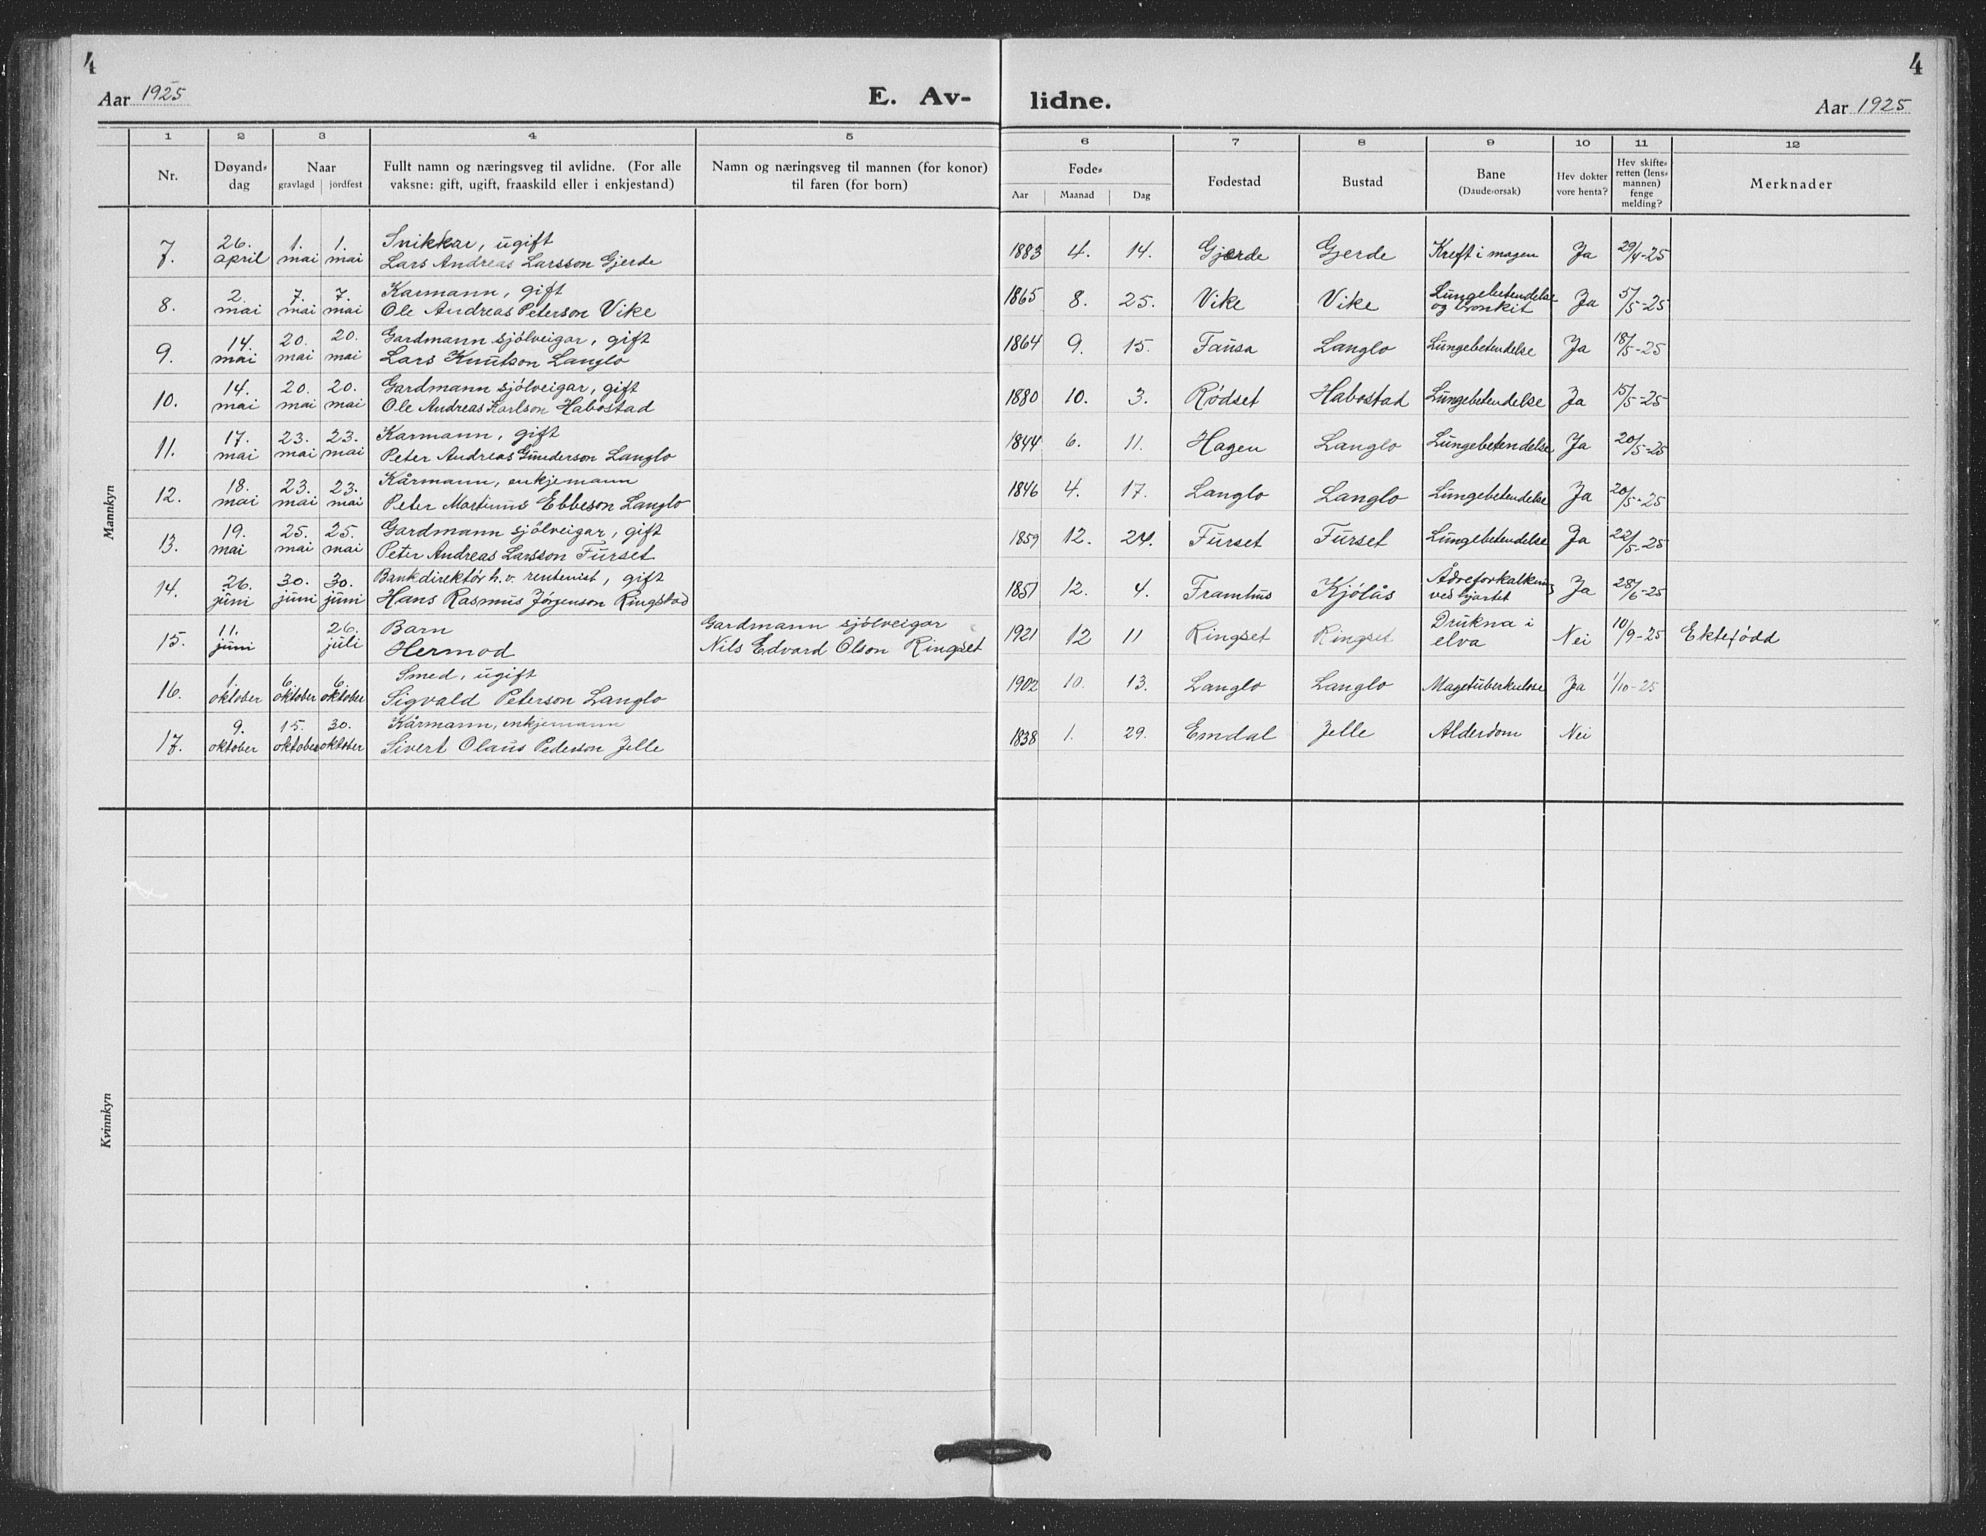 4
4
Aar 1925
E. Av-
lidne.
Aar 1925
1 2 3 4 5 6 7 8 9 10 11 12
Nr.
Døyand-dag
Naar
gravlagd | jordfest
Fullt namn og næringsveg til avlidne. (For alle
vaksne: gift, ugift, fraaskild eller i enkjestand)
Namn og næringsveg til mannen (for konor)
til faren (for born)
Føde-
Aar Maanad Dag
Fødestad
Bustad
Bane
(Daude-orsak)
Hev dokter
vore henta?
Hev skifte-
retten (lens-
mannen)
fenge
melding?
Merknader
Mannkyn
7. 26. april 1. mai 1. mai Snikkar, ugift
Lars Andreas Larsson Gjerde 1883 4. 14. Gjerde Gjerde Kreft i magen Ja 29/4-25
8. 2. mai 7. mai 7. mai Karmann, gift
Ole Andreas Peterson Vike 1865 8. 25. Vike Vike Lungebetendelse og bronkit Ja 5/5-25
9. 14. mai 20. mai 20. mai Gardmann sjölveigar, gift
Lars Knutson Langlo 1864 9. 15. Fausa Langlo Lungebetendelse Ja 18/5-25
10. 14. mai 20. mai 20. mai Gardmann sjölveigar, gift
Ole Andreas Karlson Habostad 1880 10. 3. Rødset Habostad Lungebetendelse Ja 15/5-25
11. 17. mai 23. mai 23. mai Karmann, gift
Peter Andreas Gunderson Langlo 1844 6. 11. Hagen Langlo Lungebetendelse Ja 20/5-25
12. 18. mai 23. mai 23. mai Kårmann, enkjemann
Peter Martinus Ebbeson Langlo 1846 4. 17. Langlo Langlo Lungebetendelse Ja 20/5-25
13. 19. mai 25. mai 25. mai Gardmann sjölveigar, gift
Peter Andreas Larsson Furset 1859 12. 24. Furset Furset Lungebetendelse Ja 22/5-25
14. 26. juni 30. juni 30. juni Bankdirektör h.v. rentenist, gift
Hans Rasmus Jørgenson Ringstad 1851 12. 4. Framhus Kjölås Ådreforkalkning ved hjartet Ja 28/6-25
15. 11. juni 26. juli Barn
Hermod Gardmann sjölveigar
Nils Edvard Olson Ringset 1921 12 11 Ringset Ringset Drukna i elva Nei 10/9-25 Ektefødd
16. 1. oktober 6. oktober 6. oktober Smed, ugift
Sigvald Peterson Langlo 1902 10. 13. Langlo Langlo Magetuberkulose Ja 1/10-25
17. 9. oktober 15. oktober 30. oktober Kårmann, enkjemann
Sivert Olaus Pederson Jelle 1838 1. 29. Emdal Jelle Alderdom Nei
Kvinnkyn